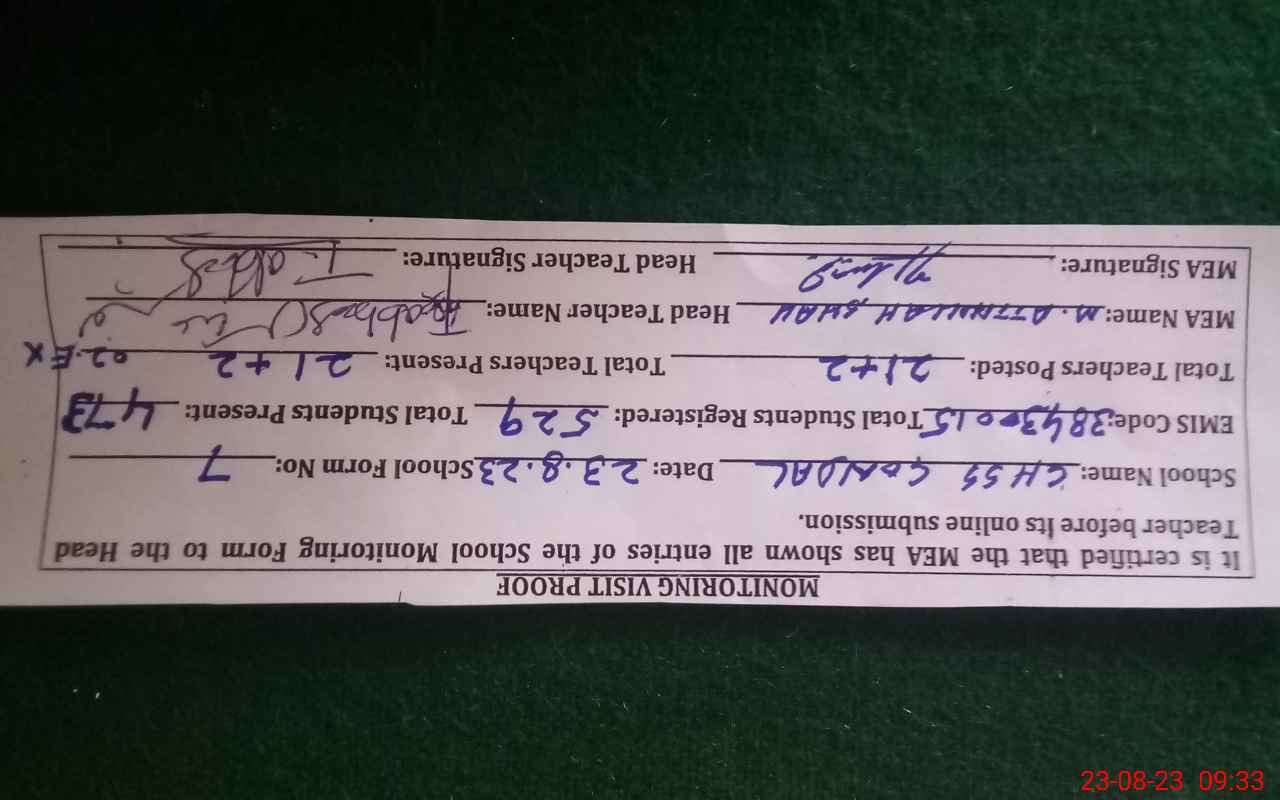 MONITORING VISIT PROOF
It is certified that the MEA has shown all entries of the School Monitoring Form to the Head
Teacher before its online submission.
School Name: GHSS GONDAL Date: 23.8.23 School Form No: 7
EMIS Code: 38430015 Total Students Registered: 529 Total Students Present: 473
Total Teachers Posted: 21+2 Total Teachers Present: 21+2 02.EX
MEA Name: M. ATTAULLAH SHAH Head Teacher Name:
MEA Signature: Head Teacher Signature:
23-08-23 09:33